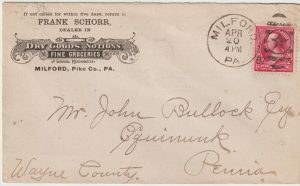 If not called for within five days, return to
FRANK SCHORR,
DEALER IN
DRY GOODS, NOTIONS,
FINE GROCERIES
MILFORD, Pike Co., PA.
MILFORD
APR
20
4 PM
PA.
Mr. John Bullock Esq
Equinunk
Wayne County
Penna